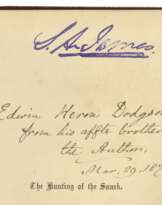 S. A. James.
Edwin Heron Dodgson
from his affte brother
the Author.
Mar. 29. 187
The Hunting of the Snark.